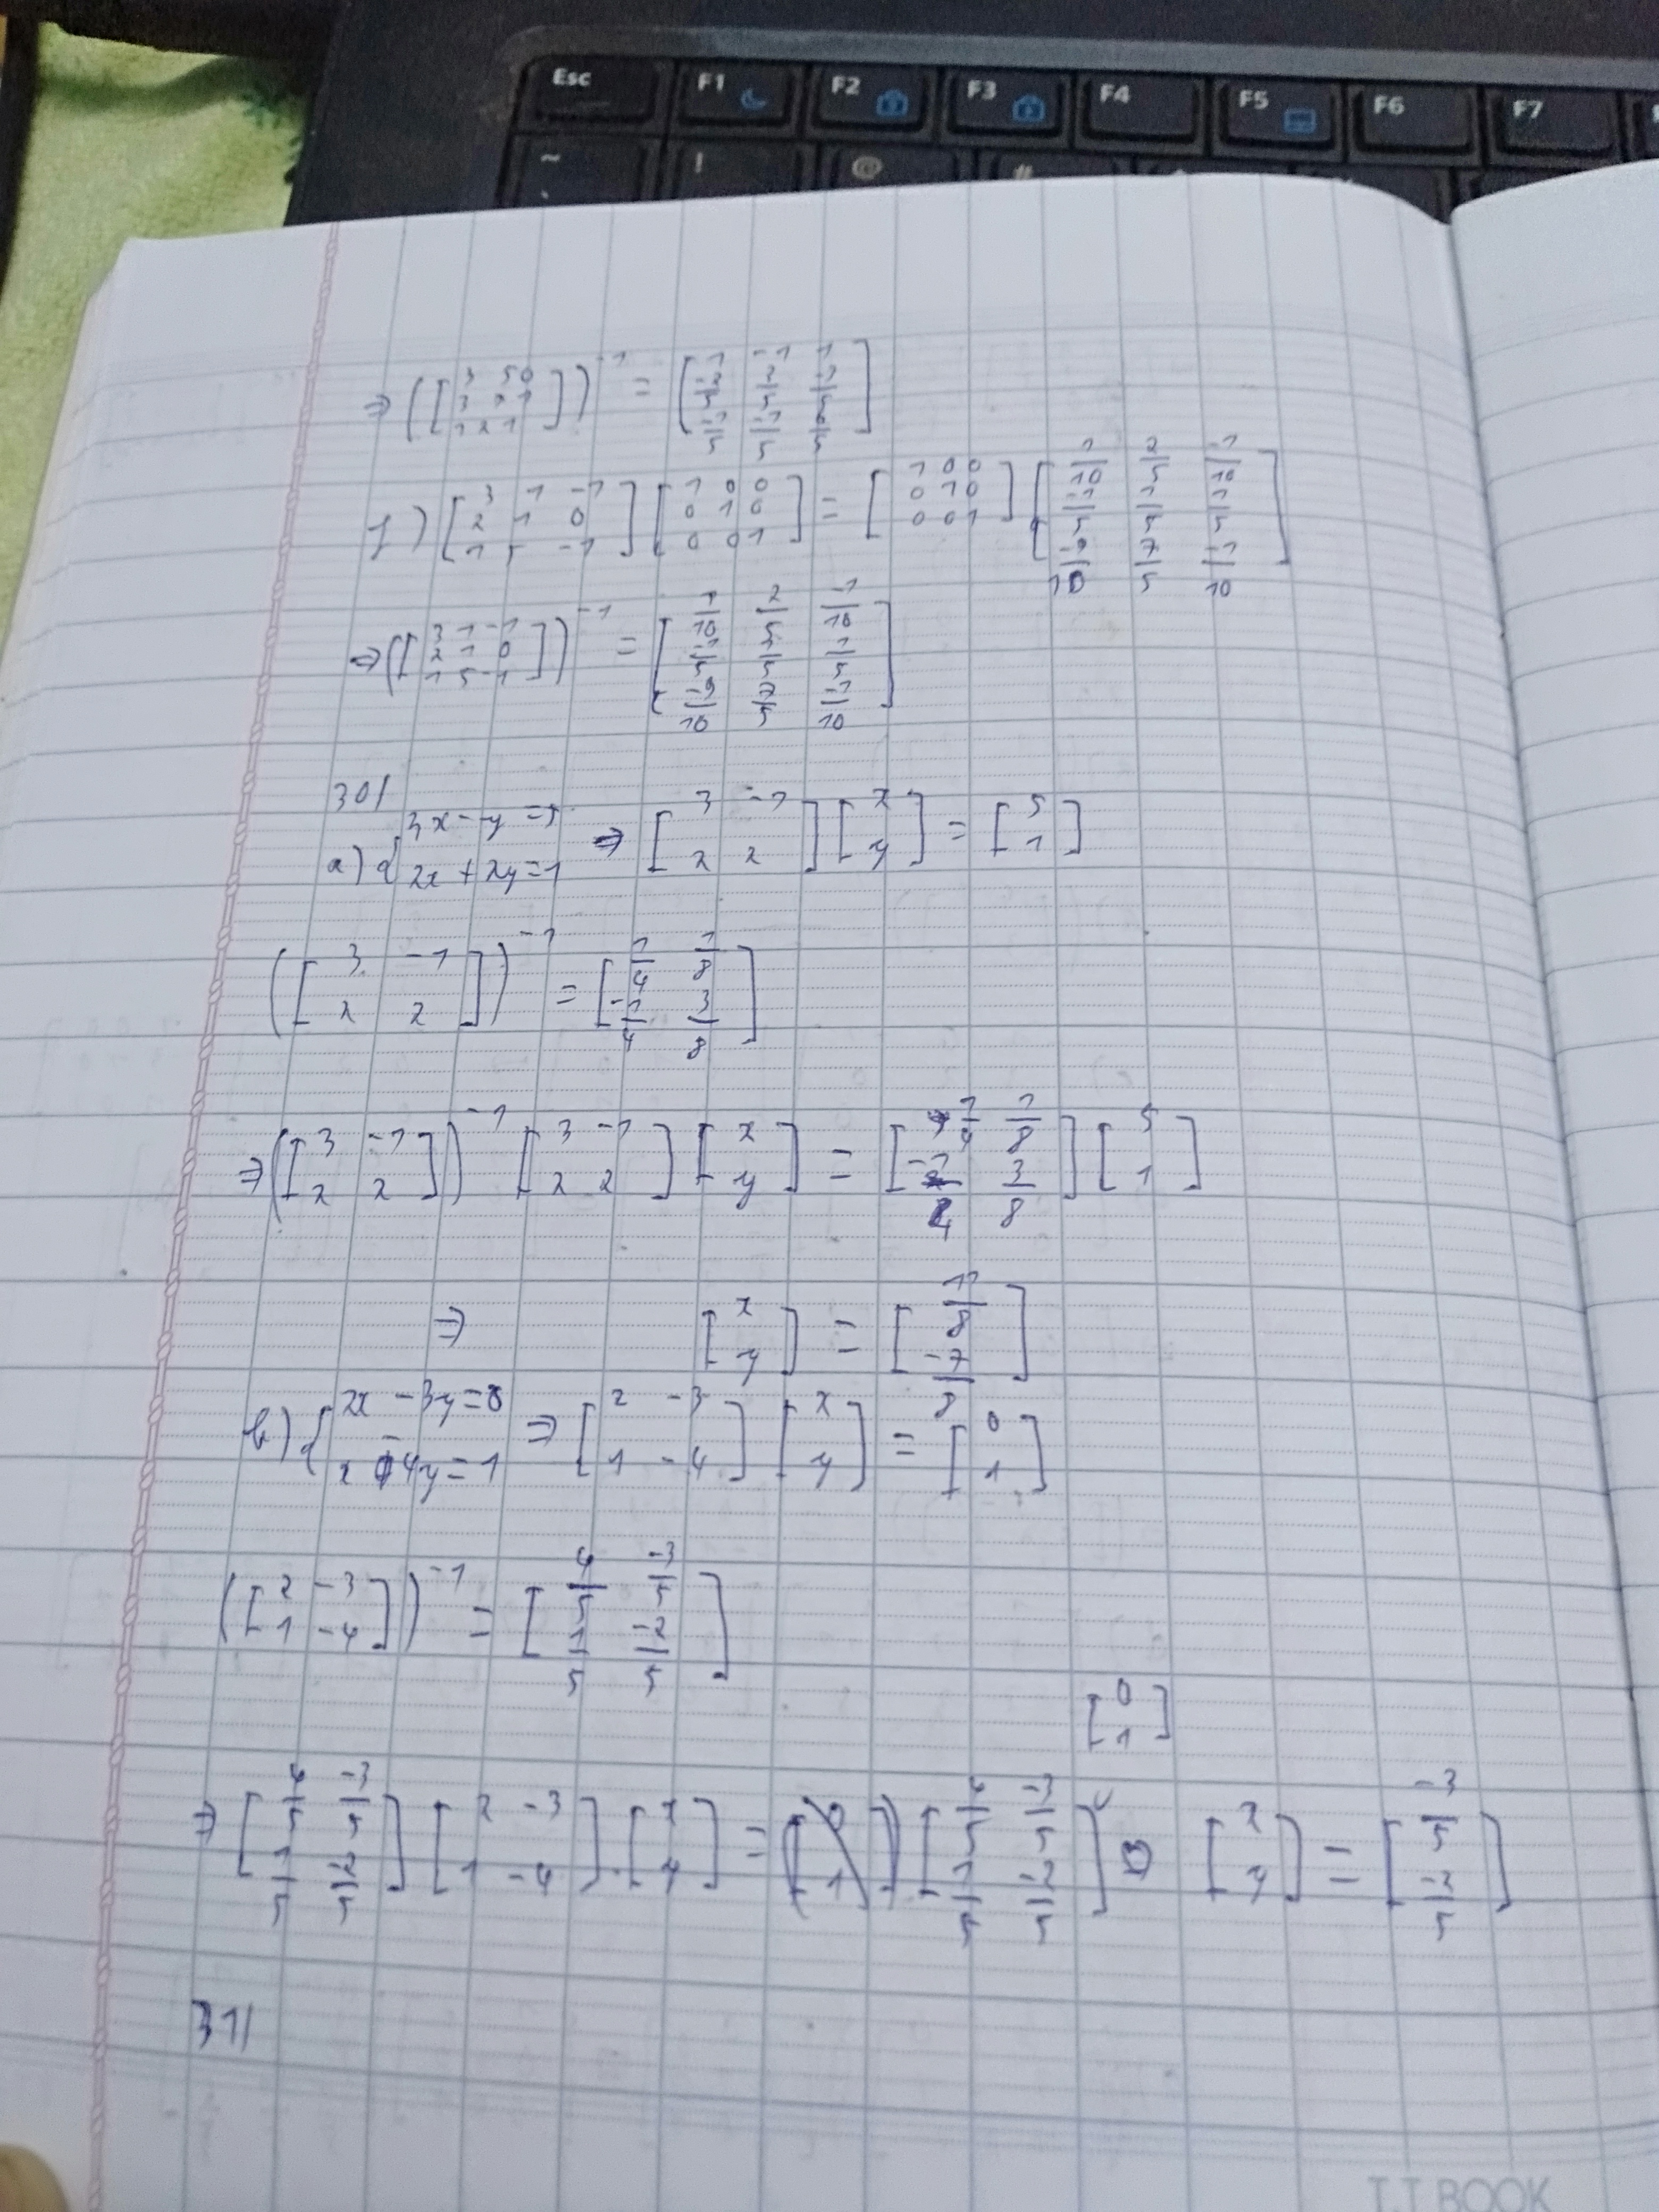 Esc F1 F2 F3 F4 F5 F6 F7
~ ! @ #
⇒ ([3 5 0; 3 2 1; 1 2 1])⁻¹ =
f) [3 1 -1; 2 1 0; 1 5 -1] [1 0 0; 0 1 0; 0 0 1] = [1 0 0; 0 1 0; 0 0 1] [1/10 2/5 -1/10; -1/5 1/5 1/5; -9/10 7/5 -1/10]
⇒ ([3 1 -1; 2 1 0; 1 5 -1])⁻¹ = [1/10 2/5 -1/10; -1/5 1/5 1/5; -9/10 7/5 -1/10]
30/
a) { 3x - y = 5; 2x + 2y = 1 ⇒ [3 -1; 2 2] [x; y] = [5; 1]
([3 -1; 2 2])⁻¹ = [1/4 1/8; -1/4 3/8]
⇒ ([3 -1; 2 2])⁻¹ [3 -1; 2 2] [x; y] = [1/4 1/8; -1/4 3/8] [5; 1]
⇒ [x; y] = [11/8; -7/8]
b) { 2x - 3y = 0; x - 4y = 1 ⇒ [2 -3; 1 -4] [x; y] = [0; 1]
([2 -3; 1 -4])⁻¹ = [4/5 -3/5; 1/5 -2/5]
[0; 1]
⇒ [4/5 -3/5; 1/5 -2/5] [2 -3; 1 -4] . [x; y] = [4/5 -3/5; 1/5 -2/5] [x; y] = [-3/5; -2/5]
31/
T.T BOOK